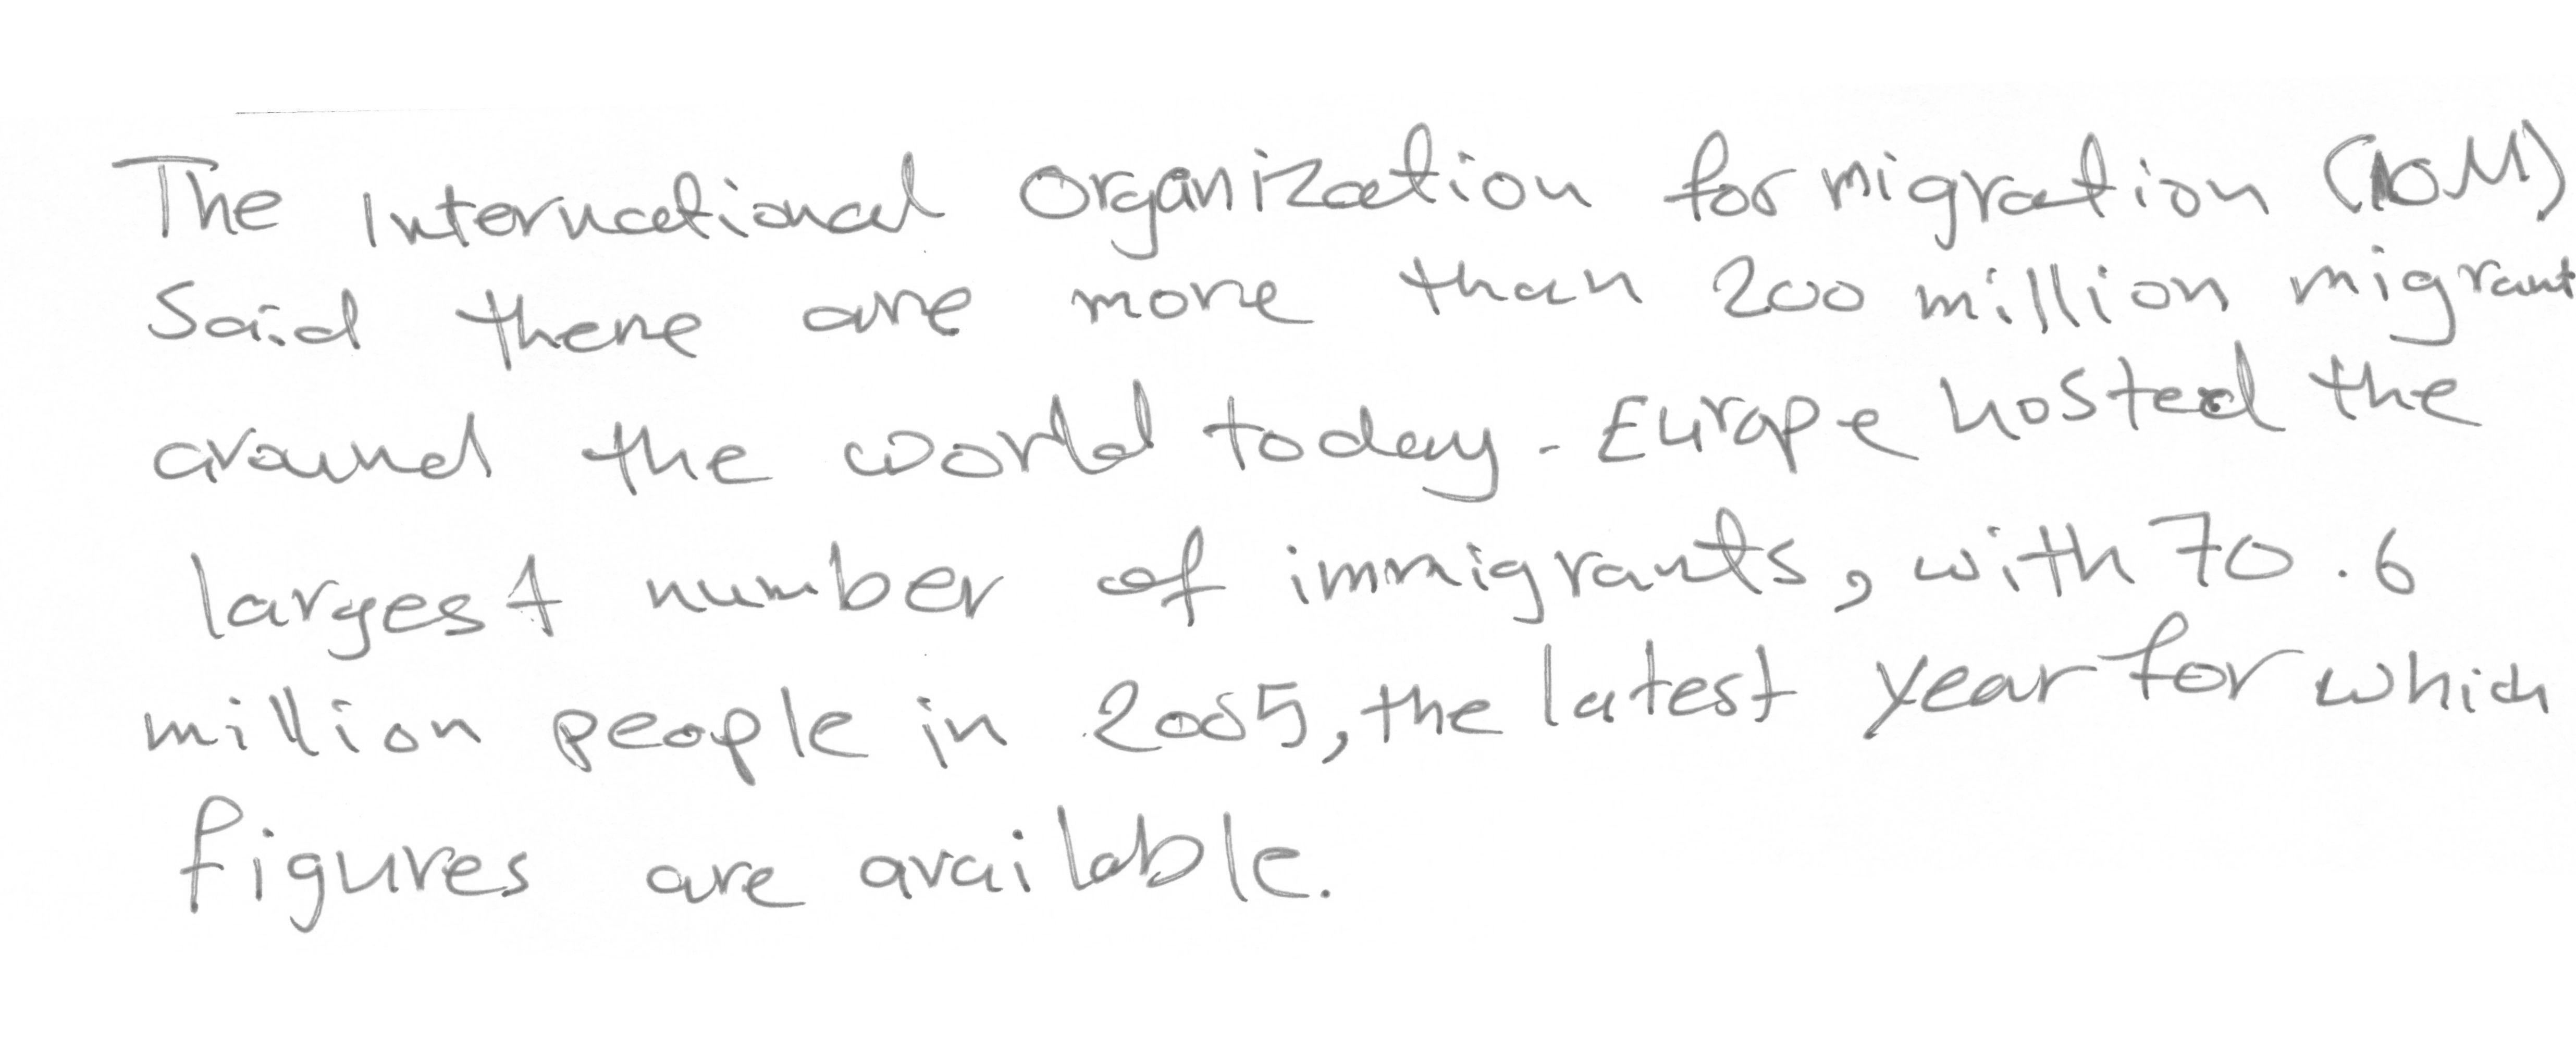 The International Organization for migration (IOM)
Said there are more than 200 million migrant
around the world today. Europe hosted the
largest number of immigrants, with 70.6
million people in 2005, the latest year for which
figures are available.